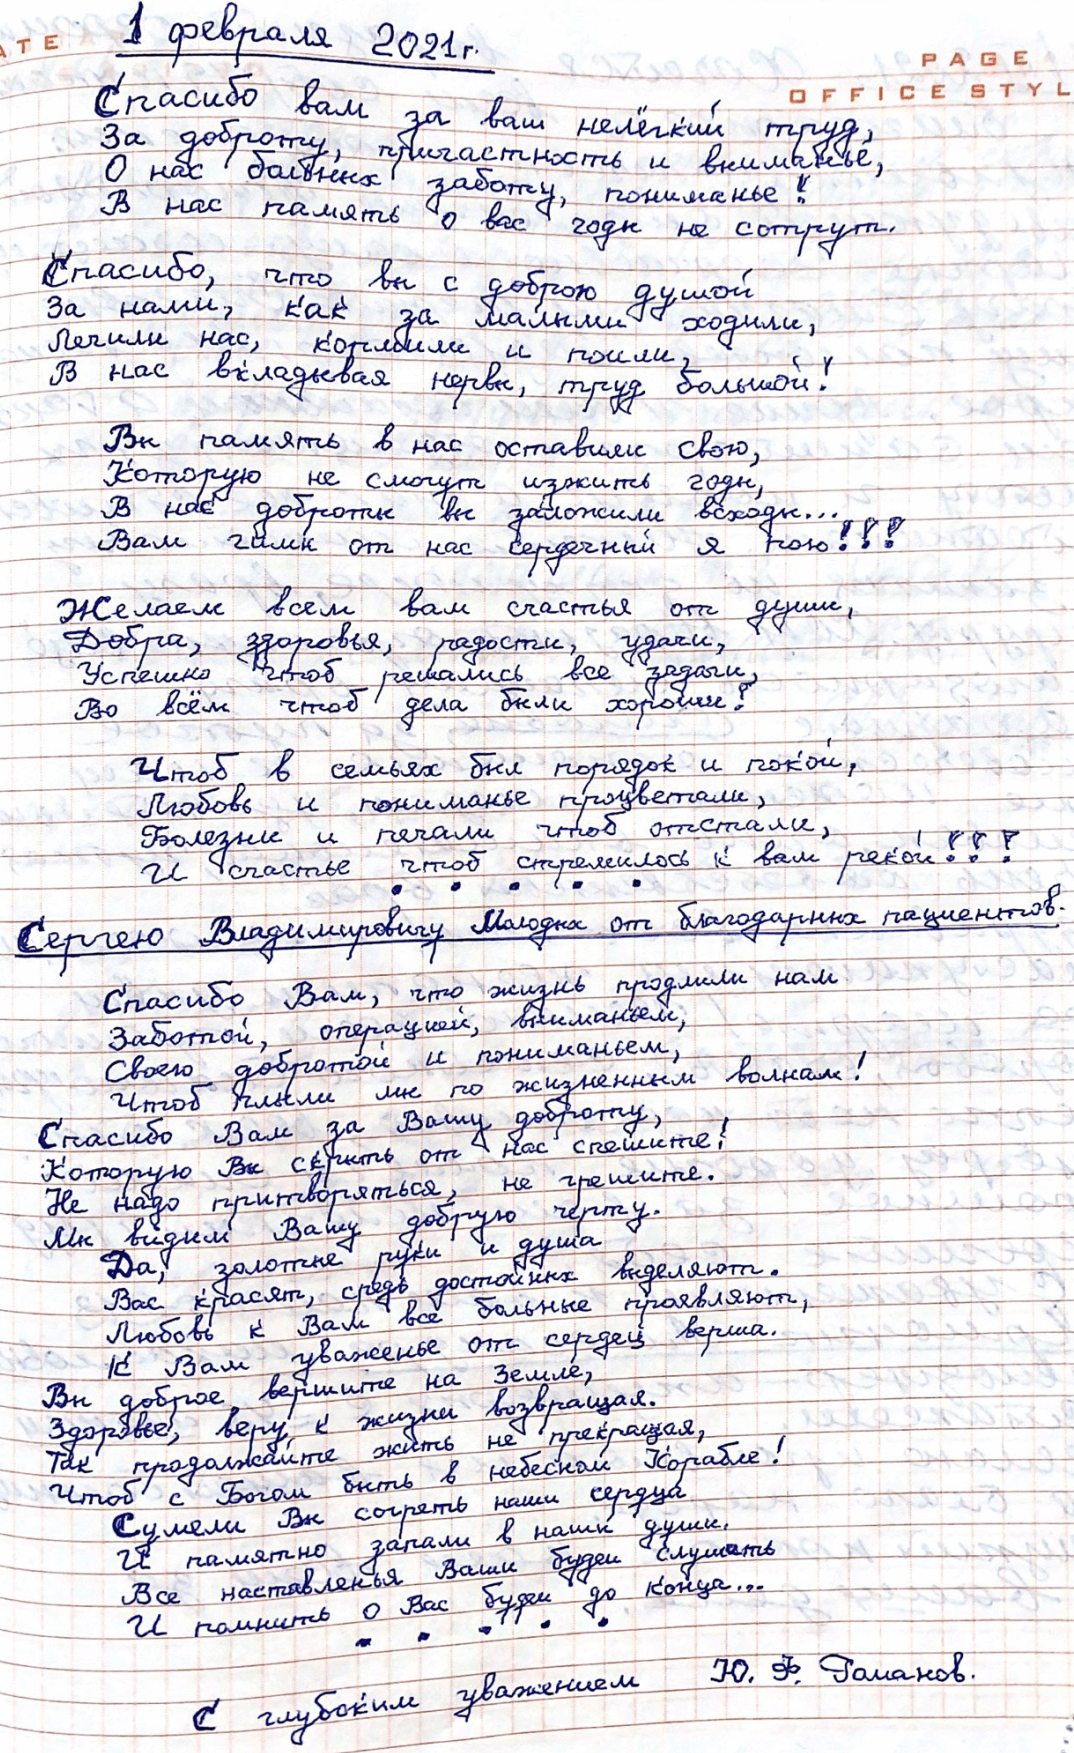 ATE
1 февраля 2021г.
PAGE
OFFICE STYL
Спасибо вам за ваш нелёгкий труд,
За доброту, причастность и вниманье,
О нас больных заботу, пониманье!
В нас память о вас годы не сотрут.
Спасибо, что вы с доброю душой
За нами, как за малыми ходили,
Лечили нас, кормили и поили,
В нас вкладывая нервы, труд большой!
Вы память в нас оставили свою,
Которую не смогут изжить годы,
В нас доброты вы заложили всходы...
Вам гимн от нас сердечный я пою!!!
Желаем всем вам счастья от души,
Добра, здоровья, радости, удачи,
Успешно чтоб решались все задачи,
Во всём чтоб дела были хороши!
Чтоб в семьях был порядок и покой,
Любовь и пониманье процветали,
Болезни и печали чтоб отстали,
И счастье чтоб стремилось к вам рекой!!!
Сергею Владимировичу Молодых от благодарных пациентов.
Спасибо Вам, что жизнь продлили нам
Заботой, операцией, вниманьем,
Своею добротой и пониманьем,
Чтоб плыли мы по жизненным волнам!
Спасибо Вам за Вашу доброту,
Которую Вы скрыть от нас спешите!
Не надо притворяться, не грешите.
Мы видим Вашу добрую черту.
Да, золотые руки и душа
Вас красят, средь достойных выделяют.
Любовь к Вам все больные проявляют,
К Вам уваженье от сердец верша.
Вы доброе вершите на Земле,
Здоровье, веру к жизни возвращая.
Так продолжайте жить не прекращая,
Чтоб с Богом быть в небесном Корабле!
Сумели Вы согреть наши сердца
И памятно запали в наши души.
Все наставленья Ваши будем слушать
И помнить о Вас будем до конца...
С глубоким уважением Ю. Ф. Гаманов.